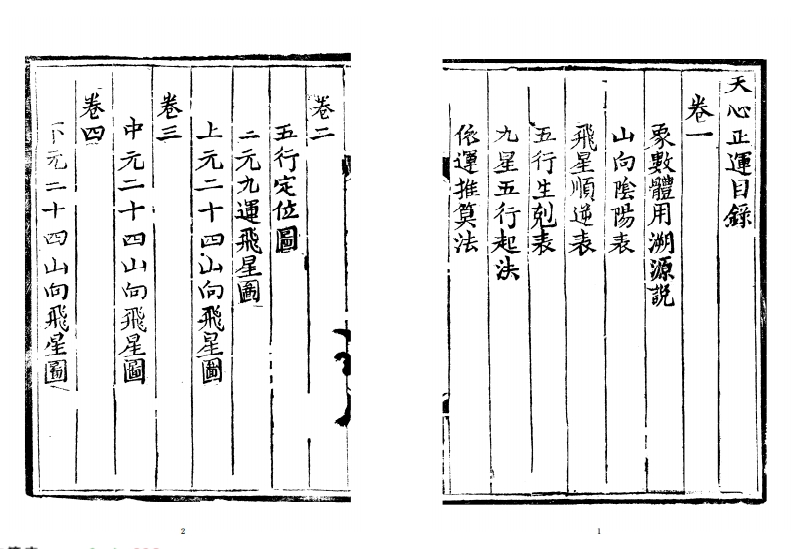 天心正運目錄
卷一
象數體用溯源說
山向陰陽表
飛星順逆表
五行生剋表
九星五行起法
依運推算法
1
卷二
五行定位圖
二元九運飛星圖
上元二十四山向飛星圖
卷三
中元二十四山向飛星圖
卷四
下元二十四山向飛星圖
2